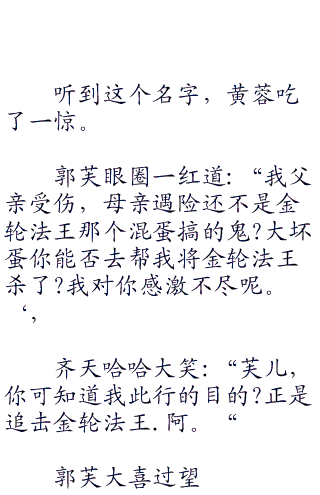 听到这个名字，黄蓉吃
了一惊。
郭芙眼圈一红道：“我父
亲受伤，母亲遇险还不是金
轮法王那个混蛋搞的鬼?大坏
蛋你能否去帮我将金轮法王
杀了?我对你感激不尽呢。
‘，
齐天哈哈大笑：“芙儿，
你可知道我此行的目的?正是
追击金轮法王.阿。“
郭芙大喜过望